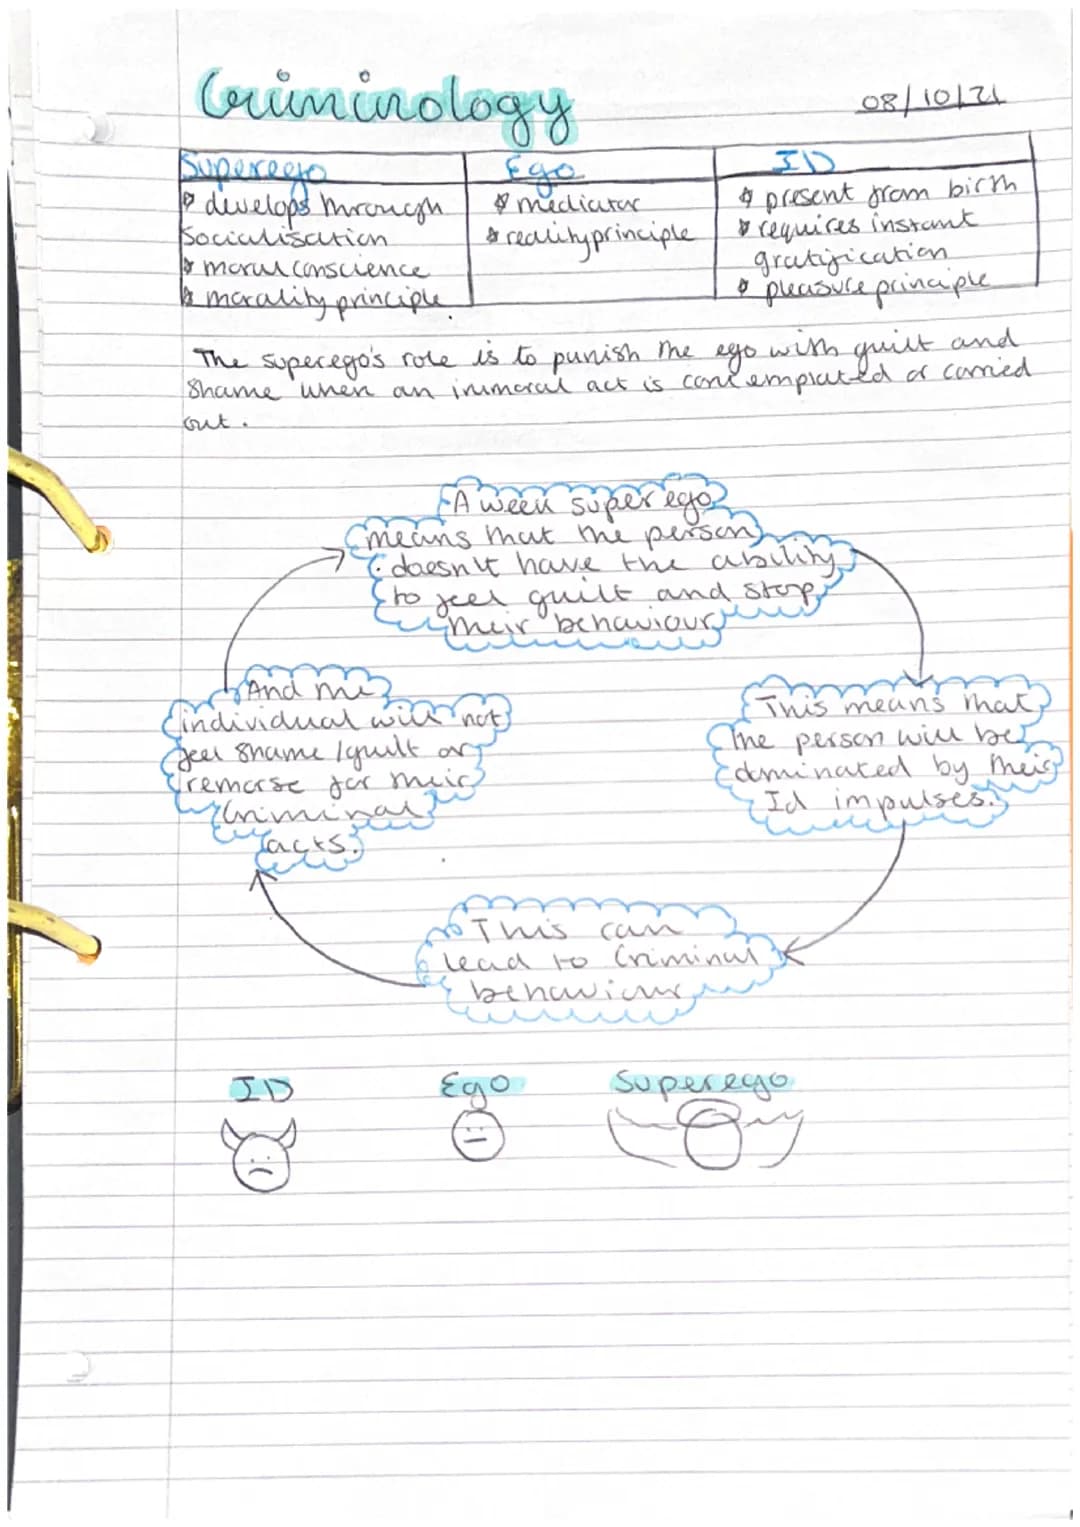 Criminology
08/10/21
Superego
develops through
Socialisation
moral conscience
morality principle.
Ego
mediator
reality principle
ID
present from birth
requires instant
gratification
pleasure principle
The superego's role is to punish the ego with guilt and
shame when an immoral act is contemplated or carried
out.
A week super ego
means that the person
doesn't have the ability
to feel guilt and stop
their behaviour
This means that
the person will be
dominated by their
Id impulses.
This can
lead to Criminal
behaviour
And the
individual will not
feel shame / guilt or
remorse for their
Criminal
acts.
ID
Ego
Superego